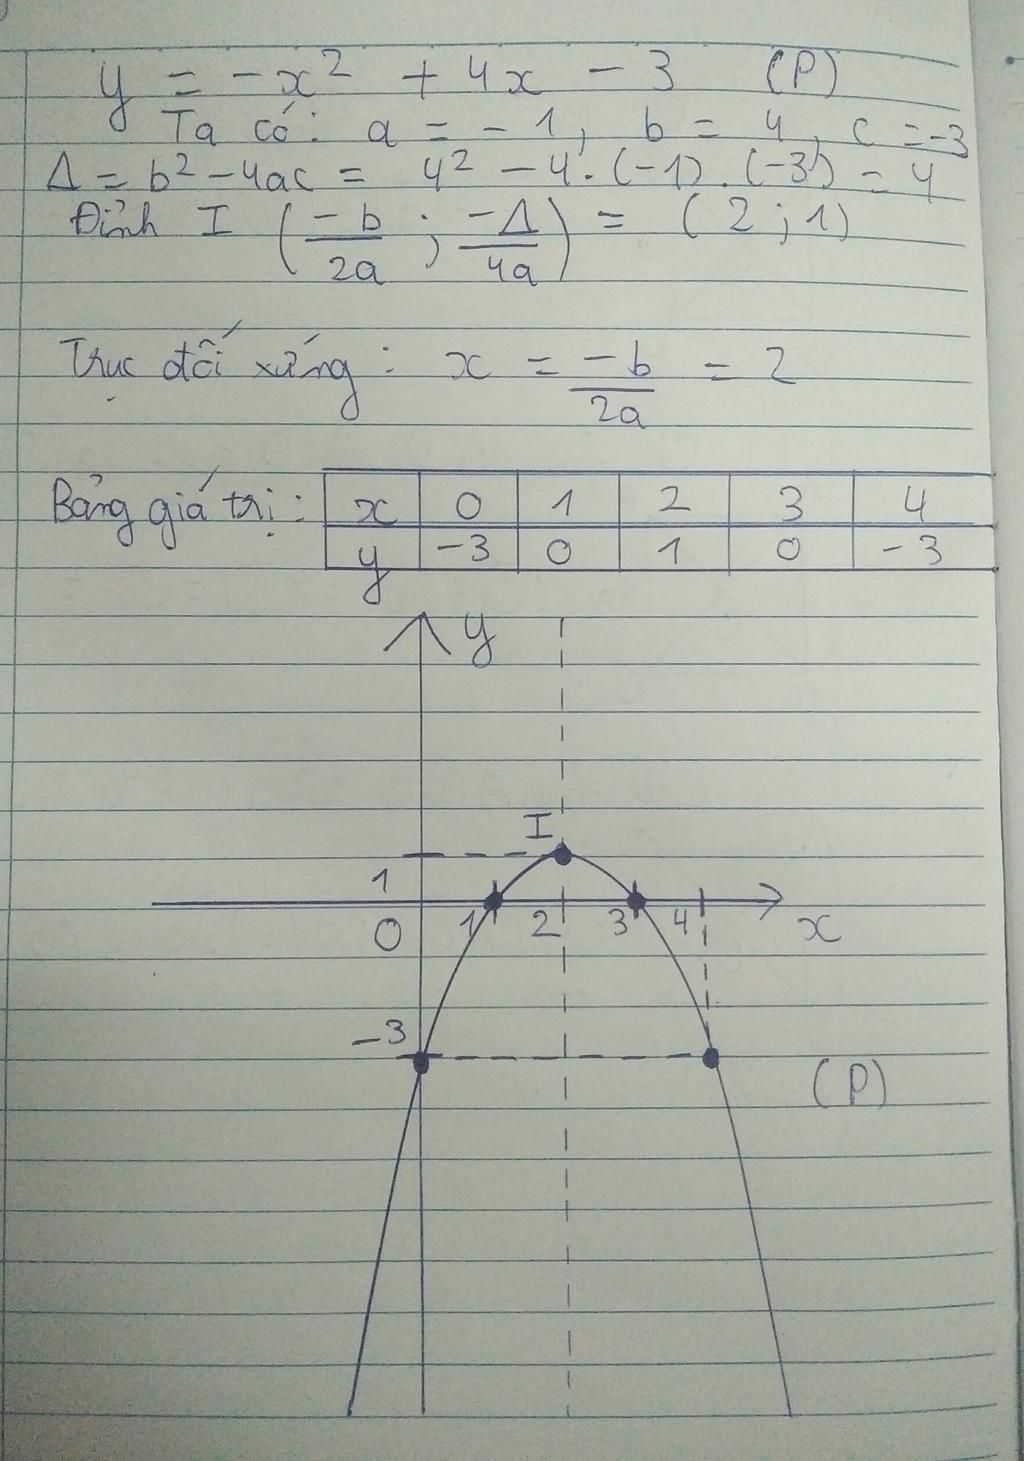 y = -x² + 4x - 3 (P)
Ta có: a = -1, b = 4, c = -3
Δ = b² - 4ac = 4² - 4.(-1).(-3) = 4
Đỉnh I (-b/2a ; -Δ/4a) = (2 ; 1)
Trục đối xứng: x = -b/2a = 2
Bảng giá trị: x 0 1 2 3 4
y -3 0 1 0 -3
y
I
1
0 1 2 3 4 x
-3
(P)